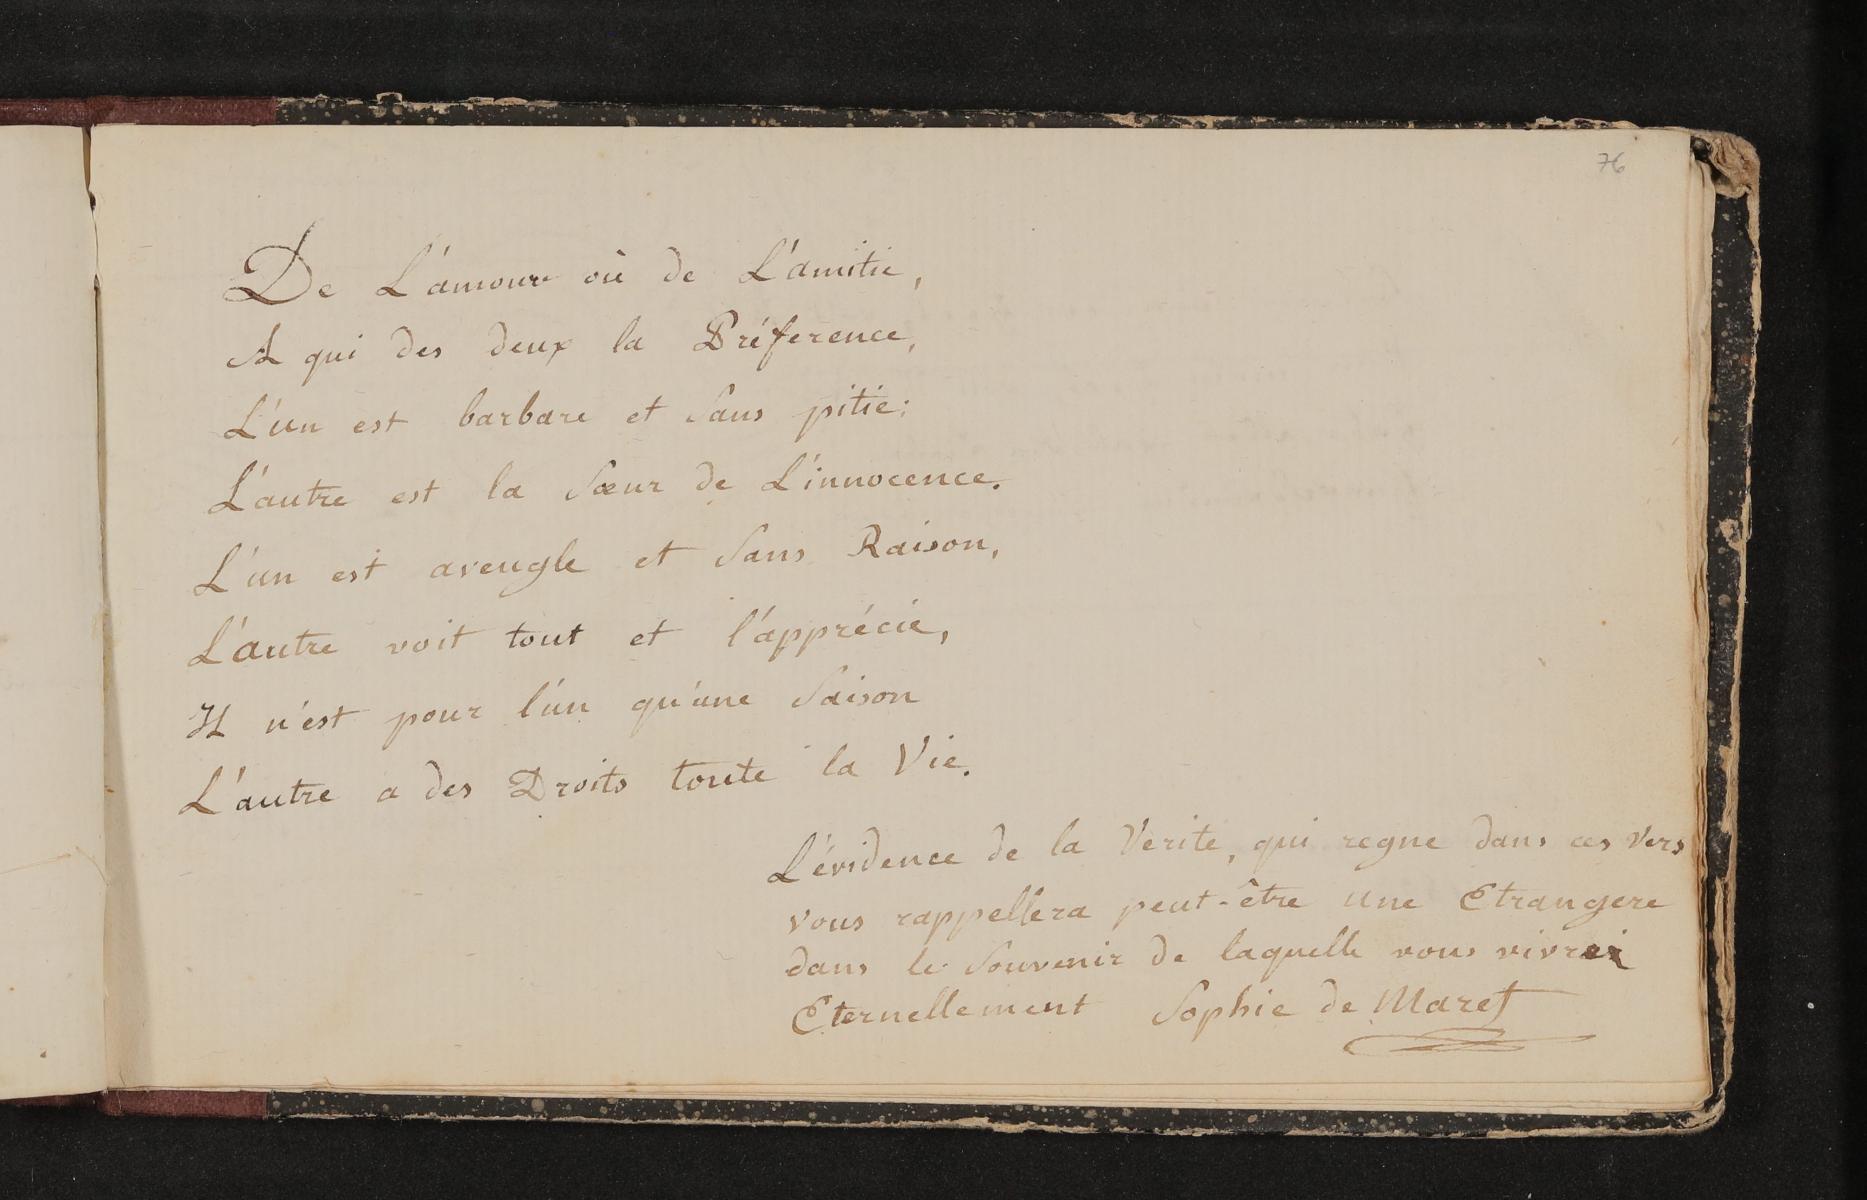 76
De L'amour où de L'amitie,
A qui des deux la Préference,
L'un est barbare et Sans pitie;
L'autre est la Sœur de L'innocence.
L'un est aveugle et Sans Raison,
L'autre voit tout et l'apprécie,
Il n'est pour l'un qu'une Saison
L'autre a des Droits toute la Vie.
L'évidence de la Verite, qui regne dans ces Vers
vous rappellera peut-être une Etrangere
dans le Souvenir de laquelle vous
Eternellement Sophie de Maret